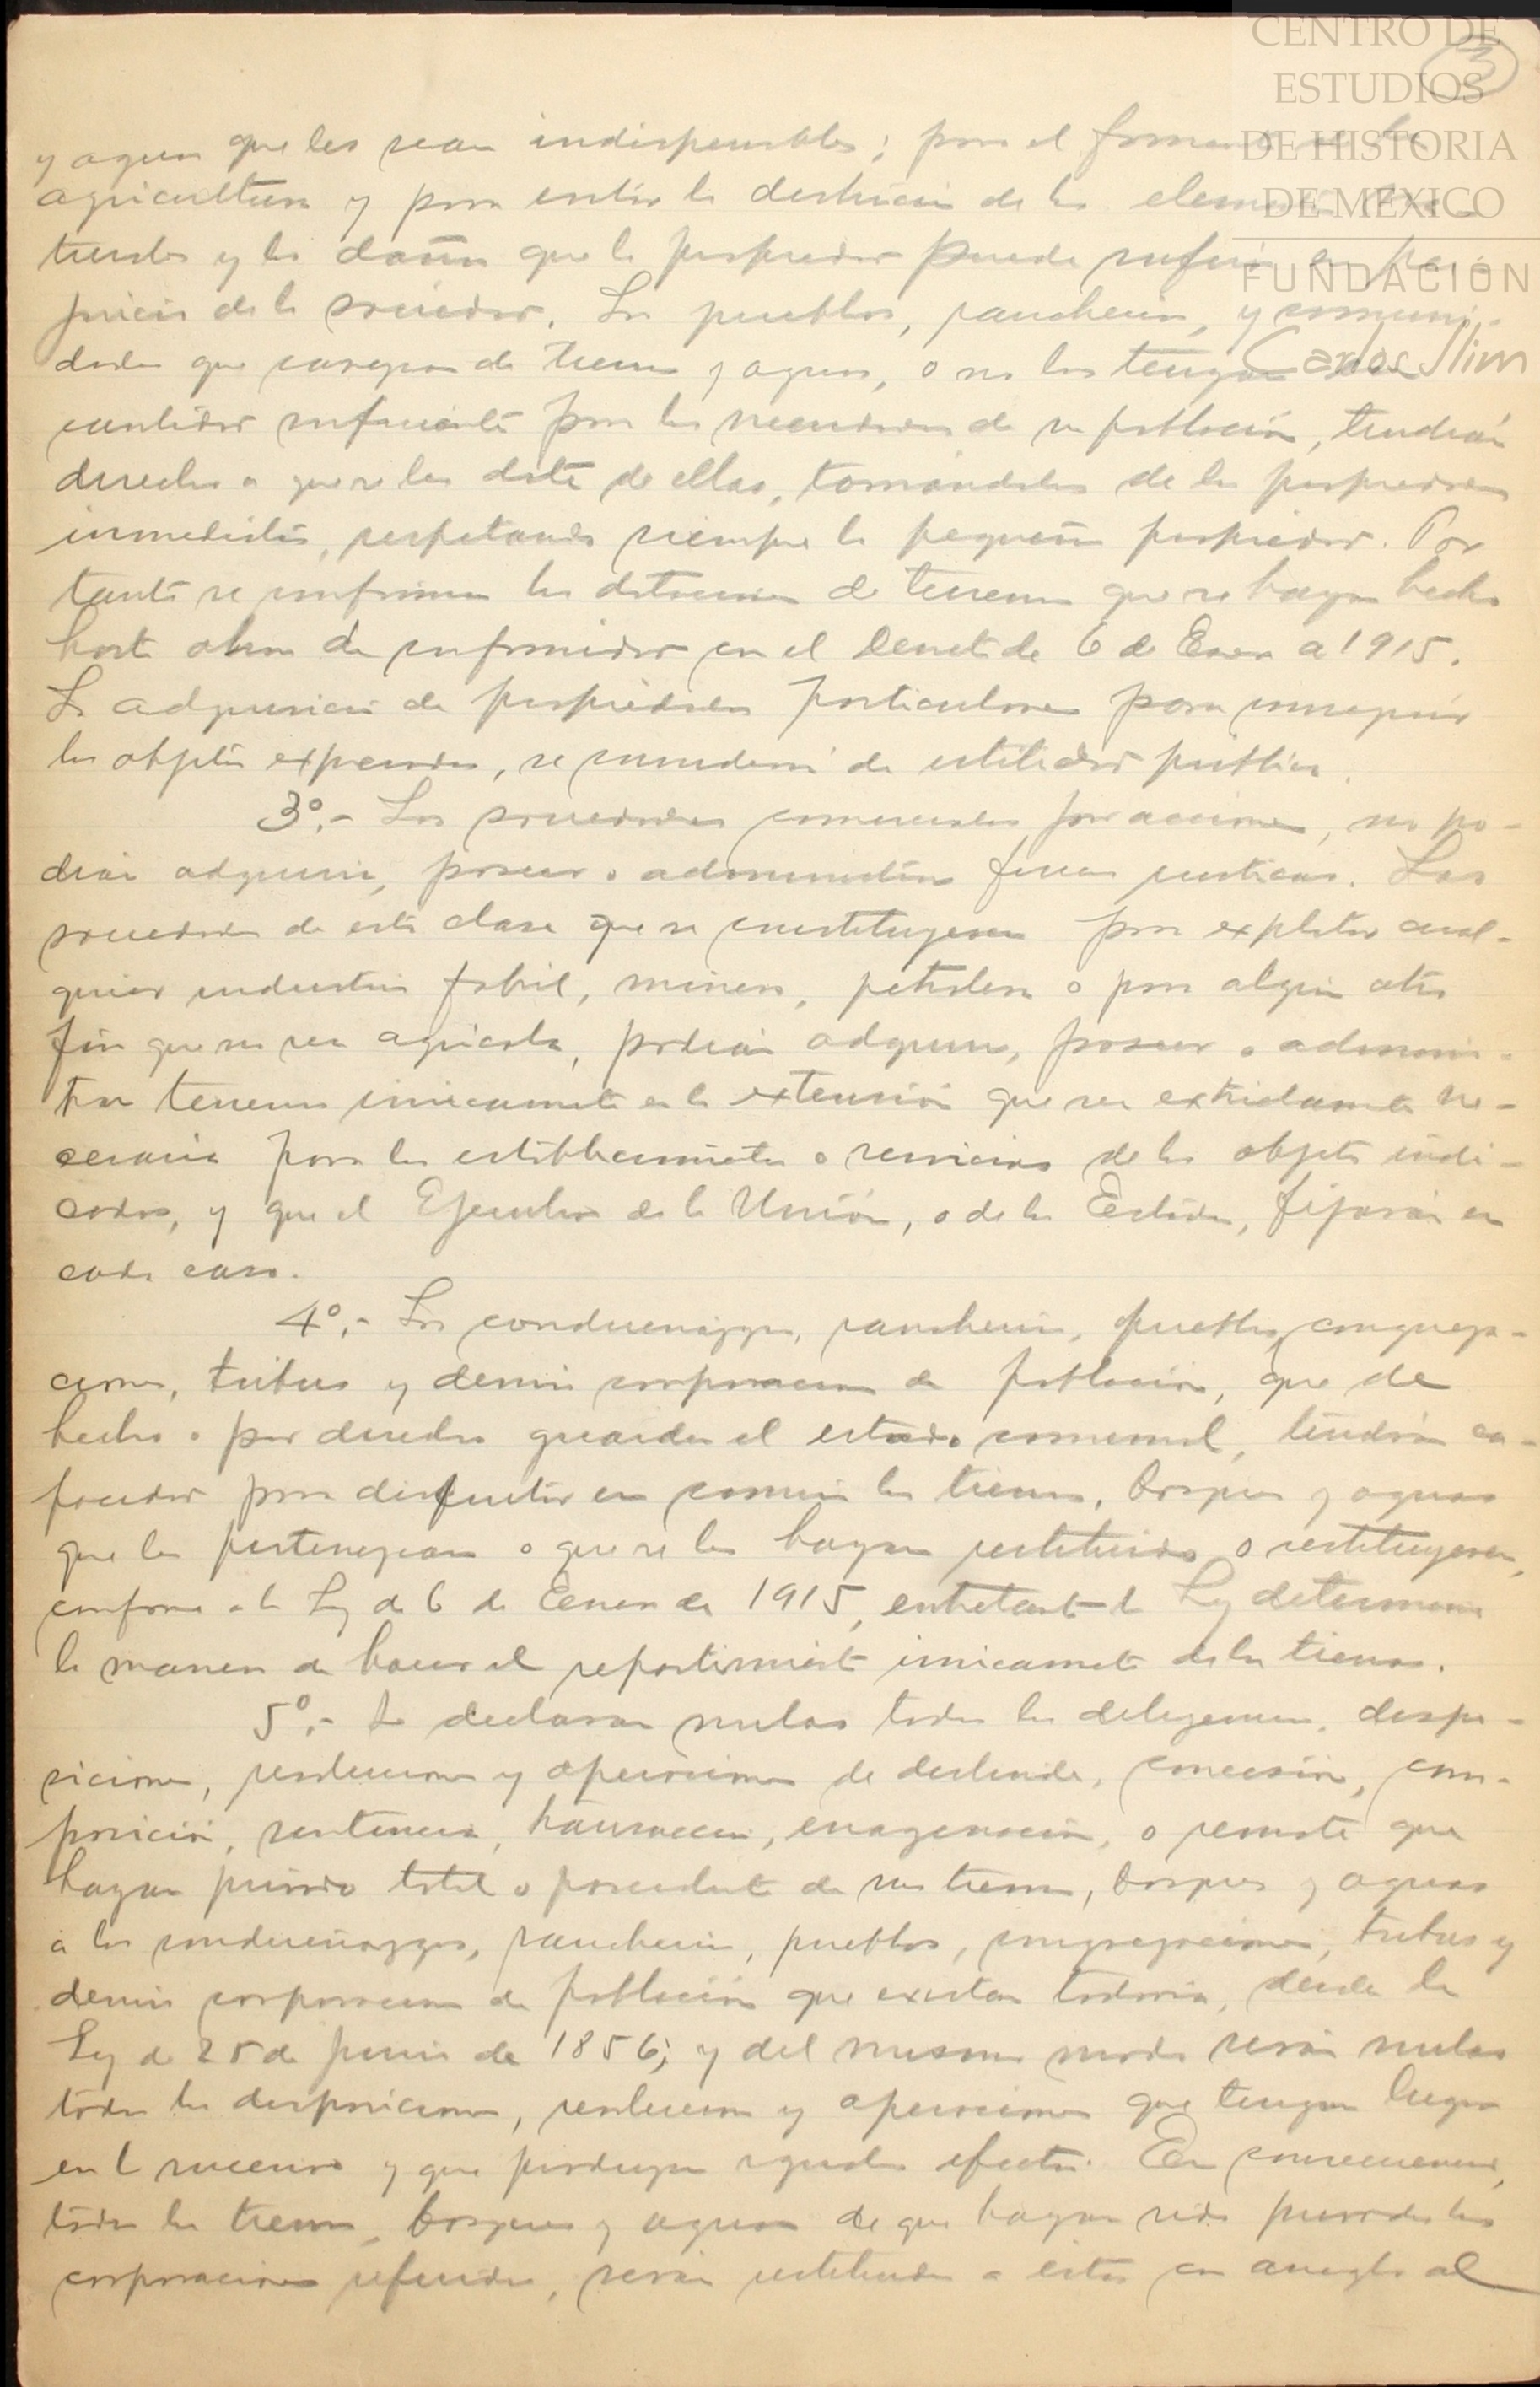 CENTRO DE
ESTUDIOS
DE HISTORIA
DE MÉXICO
FUNDACIÓN
Carlos Slim
3
y aguas que les sean indispensables; para el fomento de la
agricultura y para evitar la destrucción de los elementos na-
turales y los daños que la propiedad pueda sufrir en per-
juicio de la sociedad. Los pueblos, rancherías, y comuni-
dades que carezcan de tierras y aguas, o no las tengan en
cantidad suficiente para las necesidades de su población, tendrán
derecho a que se les dote de ellas, tomándolas de las propiedades
inmediatas, respetando siempre la pequeña propiedad. Por
tanto se confirman las dotaciones de terrenos que se hayan hecho
hasta ahora de conformidad con el Decreto de 6 de Enero de 1915.
La adquisición de propiedades particulares para conseguir
los objetos expresados, se considerará de utilidad pública.
3º.- Las sociedades comerciales por acciones, no po-
drán adquirir, poseer o administrar fincas rusticas. Las
sociedades de esta clase que se constituyeren para explotar cual-
quier industria fabril, minera, petrolera o para algún otro
fin que no sea agrícola, podrán adquirir, poseer o adminis-
trar terrenos únicamente en la extensión que sea estrictamente ne-
cesaria para los establecimientos o servicios de los objetos indi-
cados, y que el Ejecutivo de la Unión, o de los Estados, fijarán en
cada caso.
4º.- Los condueñazgos, rancherías, pueblos, congrega-
ciones, tribus y demás corporaciones de población, que de
hecho o por derecho guarden el estado comunal, tendrán ca-
pacidad para disfrutar en común las tierras, bosques y aguas
que les pertenezcan o que se les hayan restituido o restituyeren,
conforme a la Ley de 6 de Enero de 1915, entretanto la Ley determina
la manera de hacer el repartimiento únicamente de las tierras.
5º.- Se declaran nulas todas las diligencias, dispo-
siciones, resoluciones y operaciones de deslinde, concesión, com-
posición, sentencia, transacción, enagenación, o remate que
hayan privado total o parcialmente de sus tierras, bosques y aguas
a los condueñazgos, rancherías, pueblos, congregaciones, tribus y
demás corporaciones de población que existan todavía, desde la
Ley de 25 de junio de 1856; y del mismo modo serán nulas
todas las disposiciones, resoluciones y operaciones que tengan lugar
en lo sucesivo y que produzcan iguales efectos. En consecuencia,
todas las tierras, bosques y aguas de que hayan sido privadas las
corporaciones referidas, serán restituidas a éstas con arreglo al